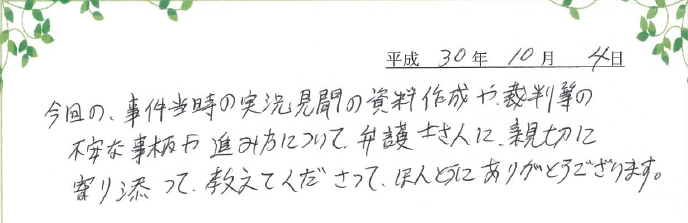 平成 30年 10月 4日
今回の、事件当時の実況見聞の資料作成や、裁判等の
不安な事柄や進み方について、弁護士さんに、親切に
寄り添って、教えてくださって、ほんとうにありがとうございます。